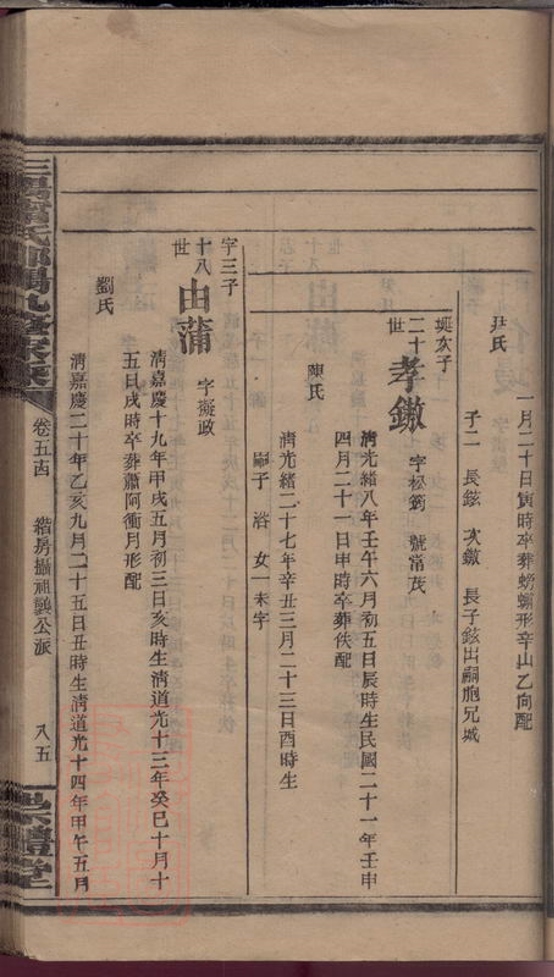 一月二十日寅時卒葬螃蠏形辛山乙向配
尹氏
子二 長鉉 次鏾 長子鉉出嗣胞兄城
珽次子
二十世
孝鏾 字松筠 號常茂
清光緒八年壬午六月初五日辰時生民國二十一年壬申
四月二十一日申時卒葬佚配
陳氏
清光緒二十七年辛丑三月二十三日酉時生
嗣子 浴 女一未字
字三子
十八世
由蒲 字擬政
清嘉慶十九年甲戌五月初三日亥時生清道光十三年癸巳十月十
五日戌時卒葬蕭阿衝月形配
劉氏
清嘉慶二十年乙亥九月二十五日丑時生清道光十四年甲午五月
卷五 緒房攝祖襲公派 八五